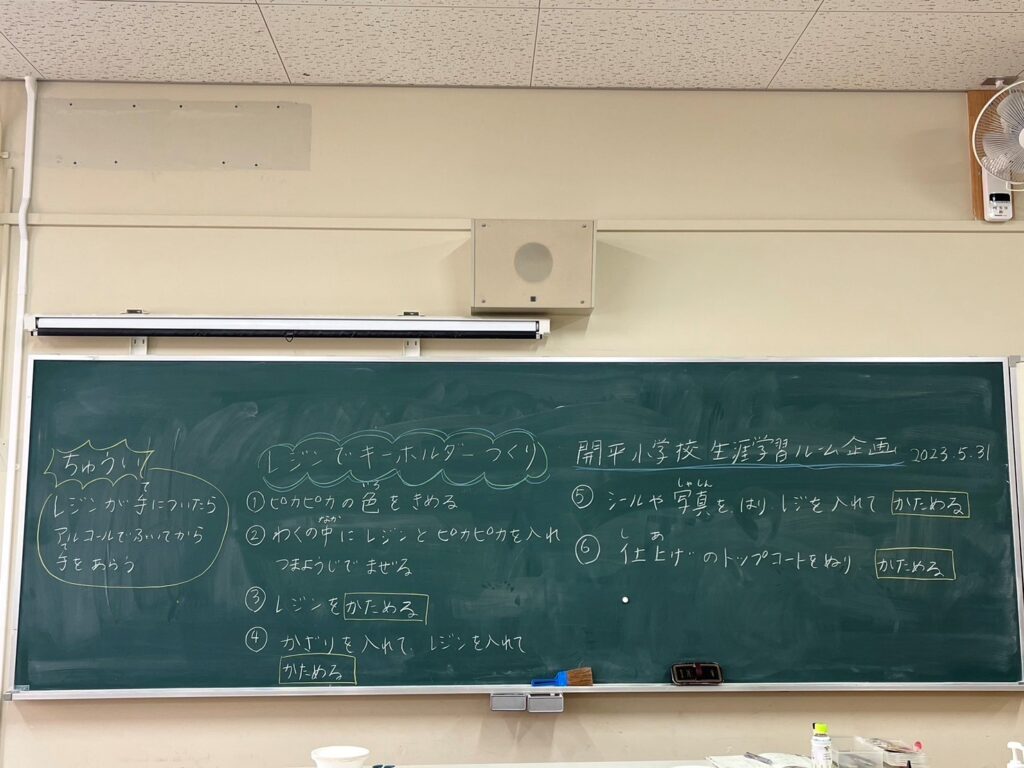 開平小学校 生涯学習ルーム企画 2023.5.31
レジンでキーホルダーつくり
ちゅうい
レジンが手についたら
アルコールでふいてから
手をあらう
①ピカピカの色をきめる
②わくの中にレジンとピカピカを入れ
つまようじでまぜる
③レジンをかためる
④かざりを入れて、レジンを入れて
かためる
⑤シールや写真をはり、レジを入れて かためる
⑥仕上げのトップコートをぬり かためる